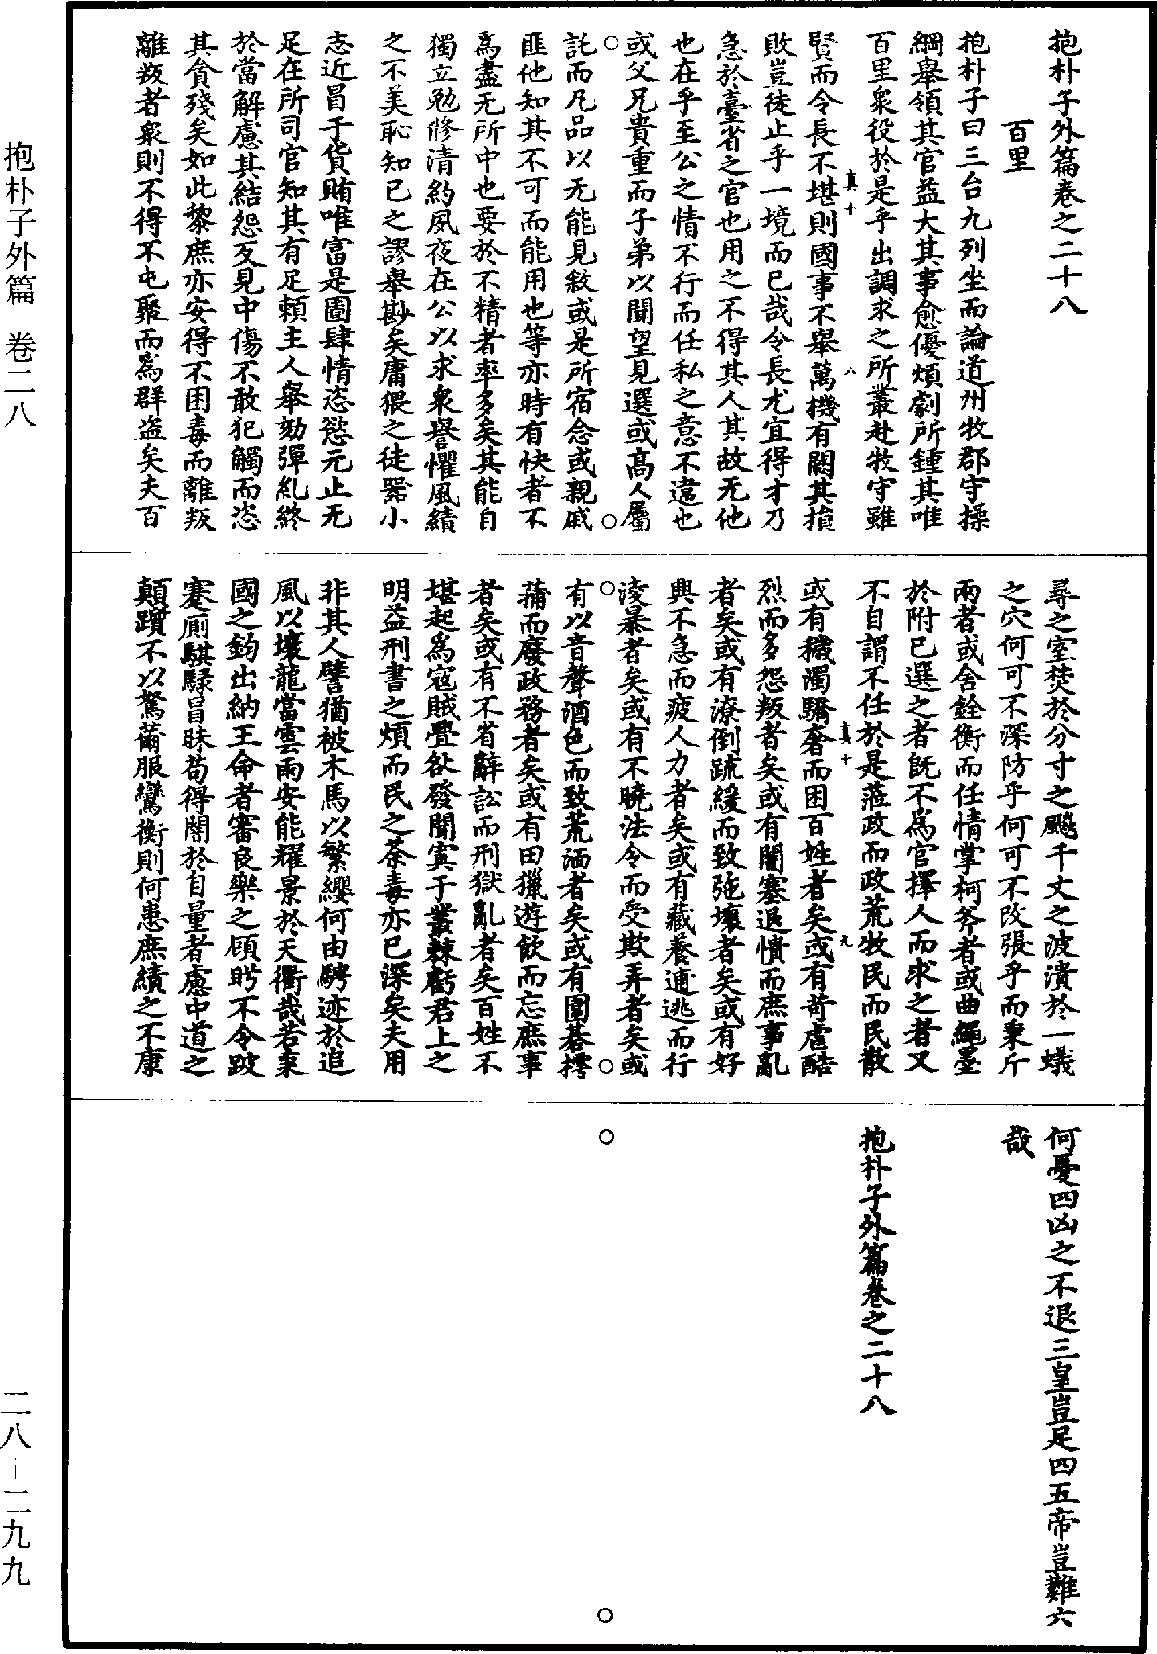 抱朴子外篇卷之二十八
百里
抱朴子曰三台九列坐而論道州牧郡守操
綱舉領其官益大其事愈優煩劇所鍾其唯
百里衆役於是乎出調求之所叢赴牧守雖
真十 八
賢而令長不堪則國事不舉萬機有闕其損
敗豈徒止乎一境而已哉令長尤宜得才乃
急於臺省之官也用之不得其人其故无他
也在乎至公之情不行而任私之意不違也
或父兄貴重而子弟以聞望見選或高人屬
託而凡品以无能見敘或是所宿念或親戚
匪他知其不可而能用也等亦時有快者不
爲盡无所中也要於不精者率多矣其能自
獨立勉修清約夙夜在公以求衆譽懼風績
之不美恥知已之謬舉尠矣庸猥之徒器小
志近冒于貨賄唯富是圖肆情恣慾无止无
足在所司官知其有足賴主人舉劾彈糺終
於當解慮其結怨反見中傷不敢犯觸而恣
其貪殘矣如此黎庶亦安得不困毒而離叛
離叛者衆則不得不屯聚而爲群盜矣夫百
尋之室焚於分寸之飈千丈之波潰於一蟻
之穴何可不深防乎何可不改張乎而秉斤
兩者或舍銓衡而任情掌柯斧者或曲繩墨
於附已選之者旣不爲官擇人而求之者又
不自謂不任於是蒞政而政荒牧民而民散
真十 九
或有穢濁驕奢而困百姓者矣或有苛虐酷
烈而多怨叛者矣或有闇塞退憒而庶事亂
者矣或有潦倒疏緩而致弛壞者矣或有好
興不急而疲人力者矣或有藏養逋逃而行
淩暴者矣或有不曉法令而受欺弄者矣或
有以音聲酒色而致荒湎者矣或有圍碁摴
蒱而廢政務者矣或有田獵遊飲而忘庶事
者矣或有不省辭訟而刑獄亂者矣百姓不
堪起爲寇賊舋咎發聞寘于叢棘虧君上之
明益刑書之煩而民之荼毒亦已深矣夫用
非其人譬猶被木馬以繁纓何由騁迹於追
風以壤龍當雲雨安能耀景於天衢哉若秉
國之鈞出納王命者審良樂之顧眄不令跛
蹇厠騏騄冒昧苟得闇於自量者慮中道之
顛躓不以駑薾服鸞衡則何患庶績之不康
何憂四凶之不退三皇豈足四五帝豈難六
哉
抱朴子外篇卷之二十八
抱朴子外篇 卷二八
二八—二九九